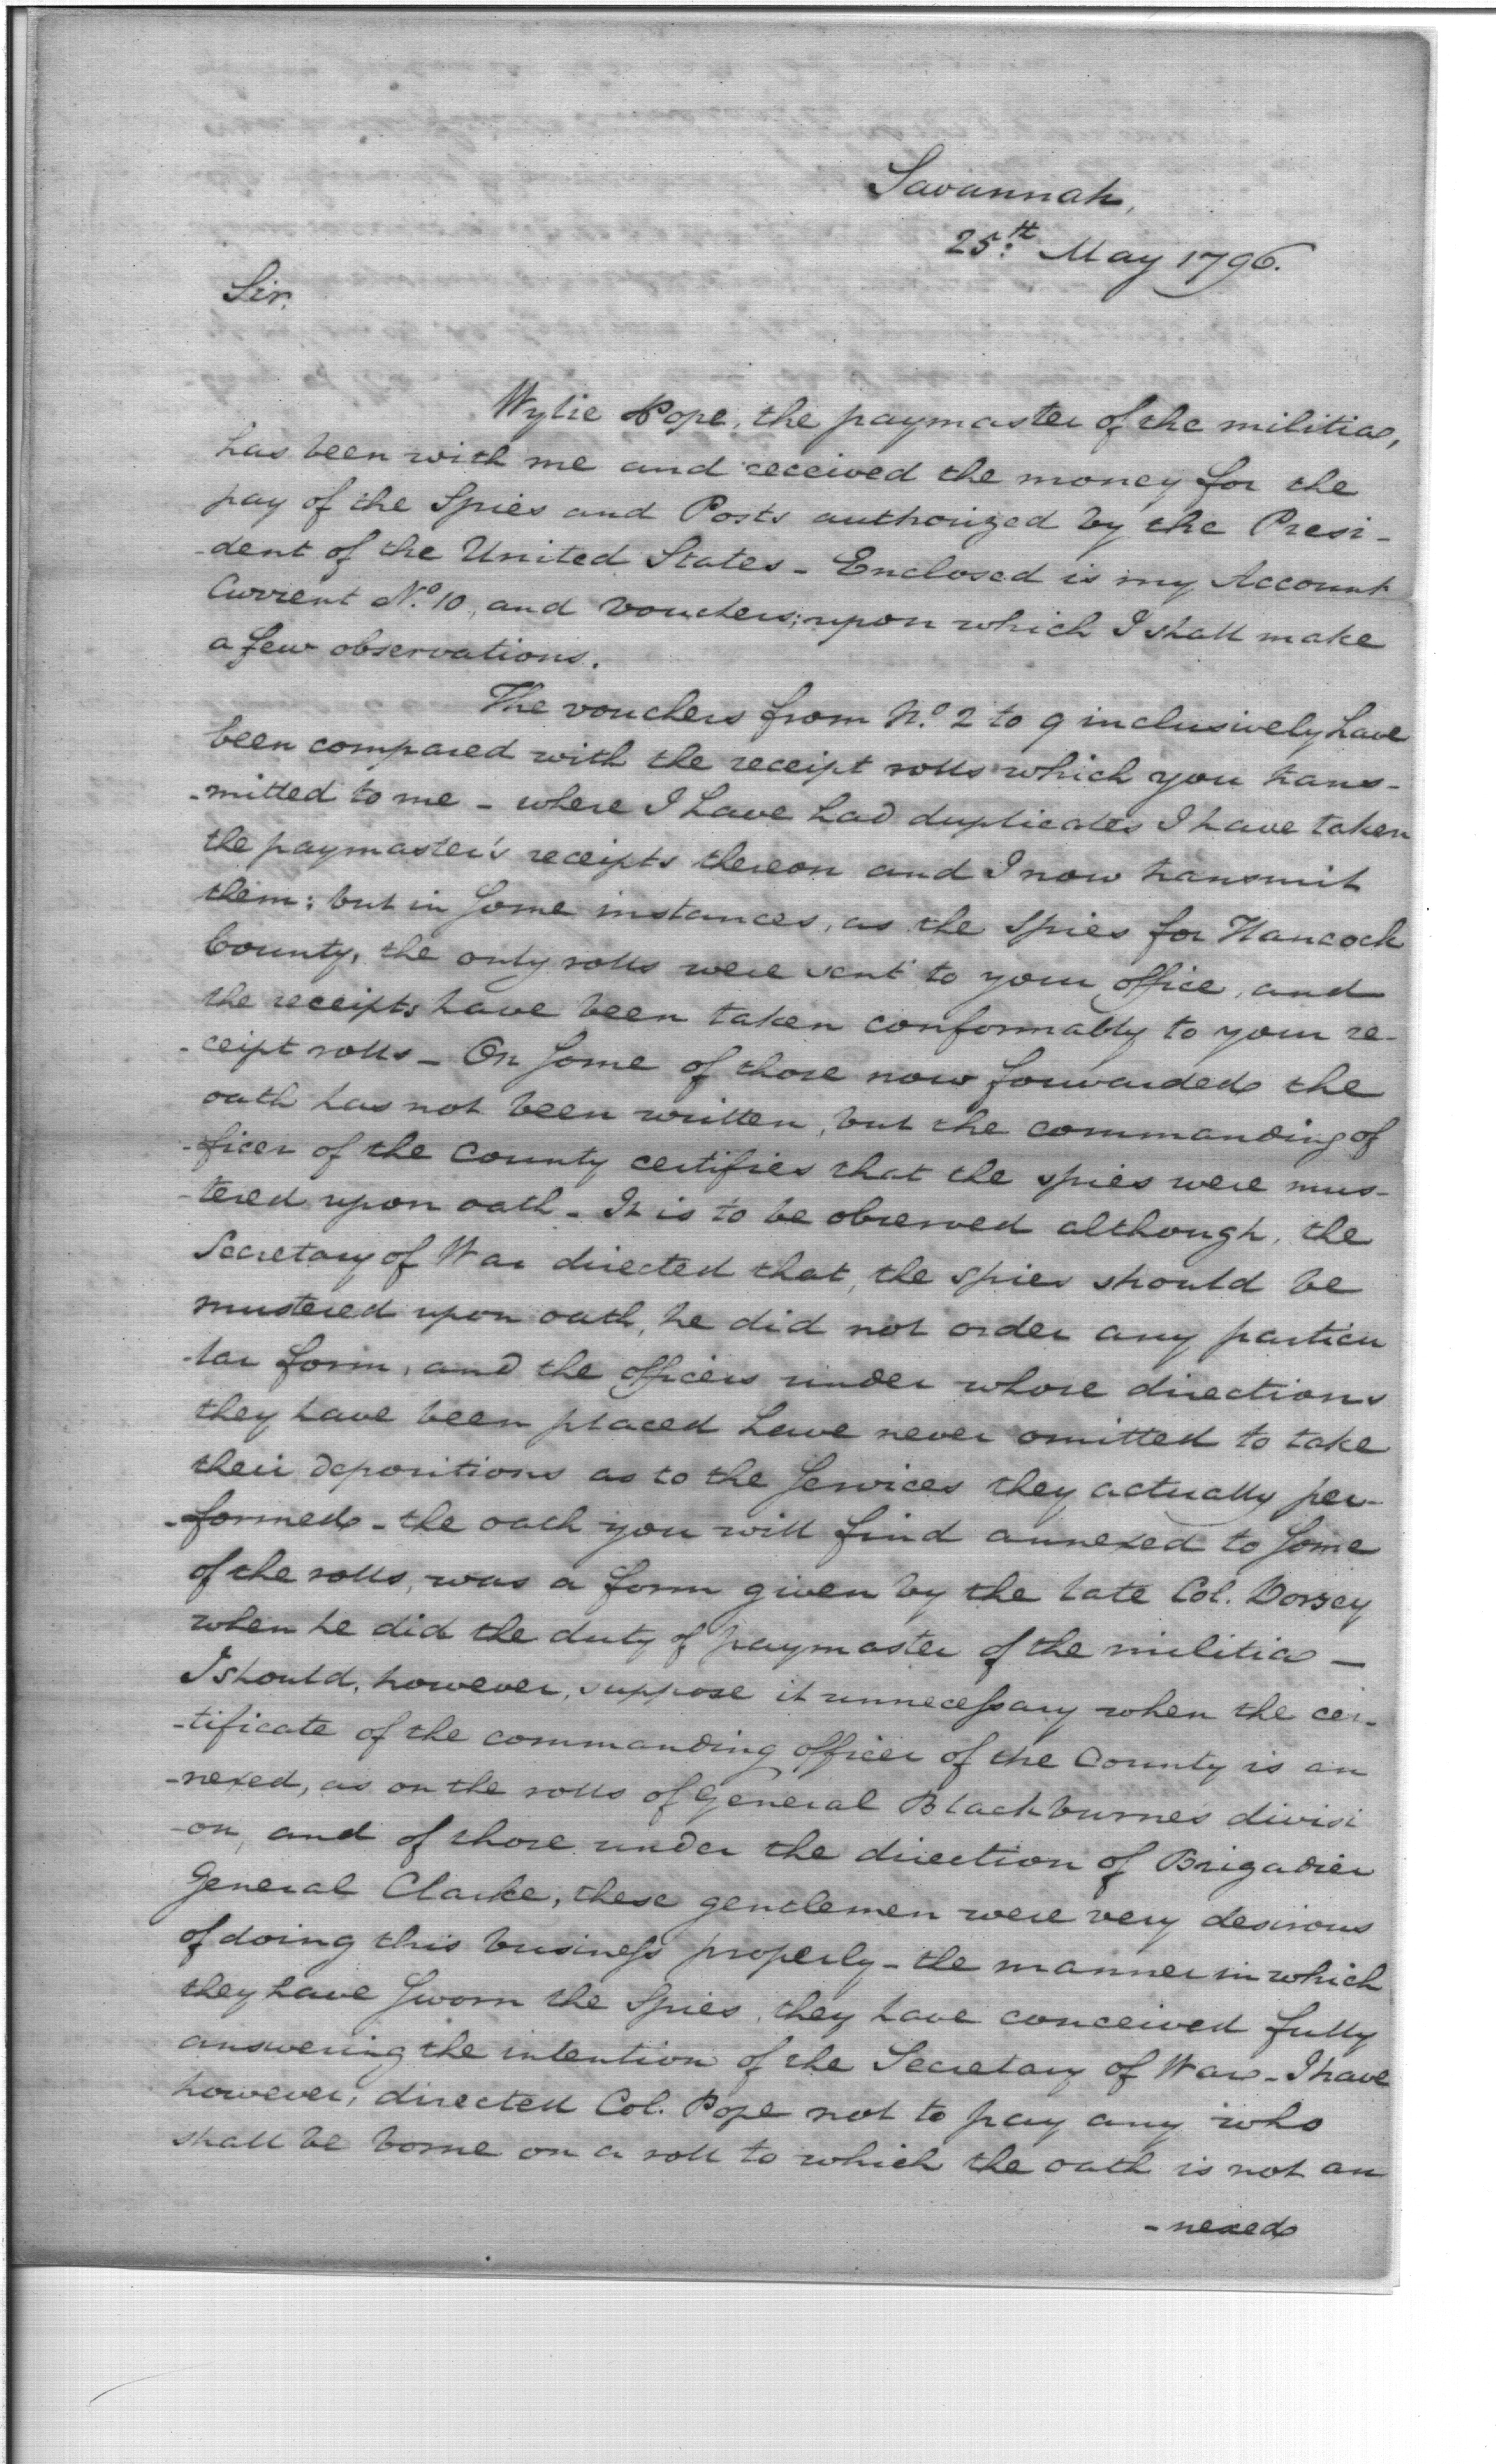 Savannah,
25th May 1796.
Sir,
Wylie Pope, the paymaster of the militia,
has been with me and received the money for the
pay of the Spies and Posts authorized by the Presi-
-dent of the United States - Enclosed is my Account
Current No. 10, and vouchers; upon which I shall make
a few observations.
The vouchers from No. 2 to 9 inclusively have
been compared with the receipt rolls which you trans-
-mitted to me - where I have had duplicates I have taken
the paymaster's receipts thereon and I now transmit
them; but in some instances, as the spies for Hancock
County, the only rolls were sent to your office, and
the receipts have been taken conformably to your re-
-ceipt rolls - On some of those now forwarded the
oath has not been written, but the commanding of
-ficer of the County certifies that the spies were mus-
-tered upon oath - It is to be observed although, the
Secretary of War directed that, the spies should be
mustered upon oath, he did not order any particu
-lar form, and the officers under whose directions
they have been placed have never omitted to take
their depositions as to the services they actually per-
-formed - the oath you will find annexed to some
of the rolls, was a form given by the late Col. Dorsey
when he did the duty of paymaster of the militia —
I should, however, suppose it unnecessary when the cer-
-tificate of the commanding officer of the County is an
-nexed, as on the rolls of General Blackburnes divisi
-on, and of those under the direction of Brigadier
General Clarke, these gentlemen were very desirous
of doing this business properly - the manner in which
they have sworn the spies, they have conceived fully
answering the intention of the Secretary of War - I have
however, directed Col. Pope not to pay any who
shall be borne on a roll to which the oath is not an
-nexed